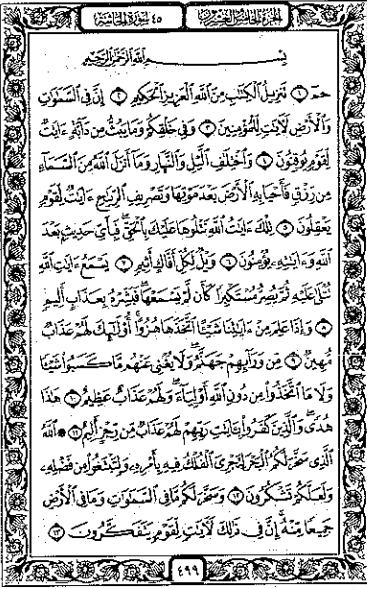 الجزء الخامس والعشرون ٤٥ سورة الجاثية
بِسْمِ اللَّهِ الرَّحْمَٰنِ الرَّحِيمِ
حمٓ ١ تَنزِيلُ الْكِتَٰبِ مِنَ اللَّهِ الْعَزِيزِ الْحَكِيمِ ٢ إِنَّ فِي السَّمَٰوَٰتِ
وَالْأَرْضِ لَءَايَٰتٍ لِّلْمُؤْمِنِينَ ٣ وَفِي خَلْقِكُمْ وَمَا يَبُثُّ مِن دَآبَّةٍ ءَايَٰتٌ
لِّقَوْمٍ يُوقِنُونَ ٤ وَاخْتِلَٰفِ الَّيْلِ وَالنَّهَارِ وَمَآ أَنزَلَ اللَّهُ مِنَ السَّمَآءِ
مِن رِّزْقٍ فَأَحْيَا بِهِ الْأَرْضَ بَعْدَ مَوْتِهَا وَتَصْرِيفِ الرِّيَٰحِ ءَايَٰتٌ لِّقَوْمٍ
يَعْقِلُونَ ٥ تِلْكَ ءَايَٰتُ اللَّهِ نَتْلُوهَا عَلَيْكَ بِالْحَقِّ فَبِأَيِّ حَدِيثٍۭ بَعْدَ
اللَّهِ وَءَايَٰتِهِۦ يُؤْمِنُونَ ٦ وَيْلٌ لِّكُلِّ أَفَّاكٍ أَثِيمٍ ٧ يَسْمَعُ ءَايَٰتِ اللَّهِ
تُتْلَىٰ عَلَيْهِ ثُمَّ يُصِرُّ مُسْتَكْبِرًا كَأَن لَّمْ يَسْمَعْهَا فَبَشِّرْهُ بِعَذَابٍ أَلِيمٍ
٨ وَإِذَا عَلِمَ مِنْ ءَايَٰتِنَا شَيْـًٔا اتَّخَذَهَا هُزُوًا أُو۟لَٰٓئِكَ لَهُمْ عَذَابٌ
مُّهِينٌ ٩ مِّن وَرَآئِهِمْ جَهَنَّمُ وَلَا يُغْنِي عَنْهُم مَّا كَسَبُوا۟ شَيْـًٔا
وَلَا مَا اتَّخَذُوا۟ مِن دُونِ اللَّهِ أَوْلِيَآءَ وَلَهُمْ عَذَابٌ عَظِيمٌ ١٠ هَٰذَا
هُدًى وَالَّذِينَ كَفَرُوا۟ بِـَٔايَٰتِ رَبِّهِمْ لَهُمْ عَذَابٌ مِّن رِّجْزٍ أَلِيمٌ ١١ اللَّهُ
الَّذِي سَخَّرَ لَكُمُ الْبَحْرَ لِتَجْرِيَ الْفُلْكُ فِيهِ بِأَمْرِهِۦ وَلِتَبْتَغُوا۟ مِن فَضْلِهِۦ
وَلَعَلَّكُمْ تَشْكُرُونَ ١٢ وَسَخَّرَ لَكُم مَّا فِي السَّمَٰوَٰتِ وَمَا فِي الْأَرْضِ
جَمِيعًا مِّنْهُ إِنَّ فِي ذَٰلِكَ لَءَايَٰتٍ لِّقَوْمٍ يَتَفَكَّرُونَ ١٣
٤٩٩